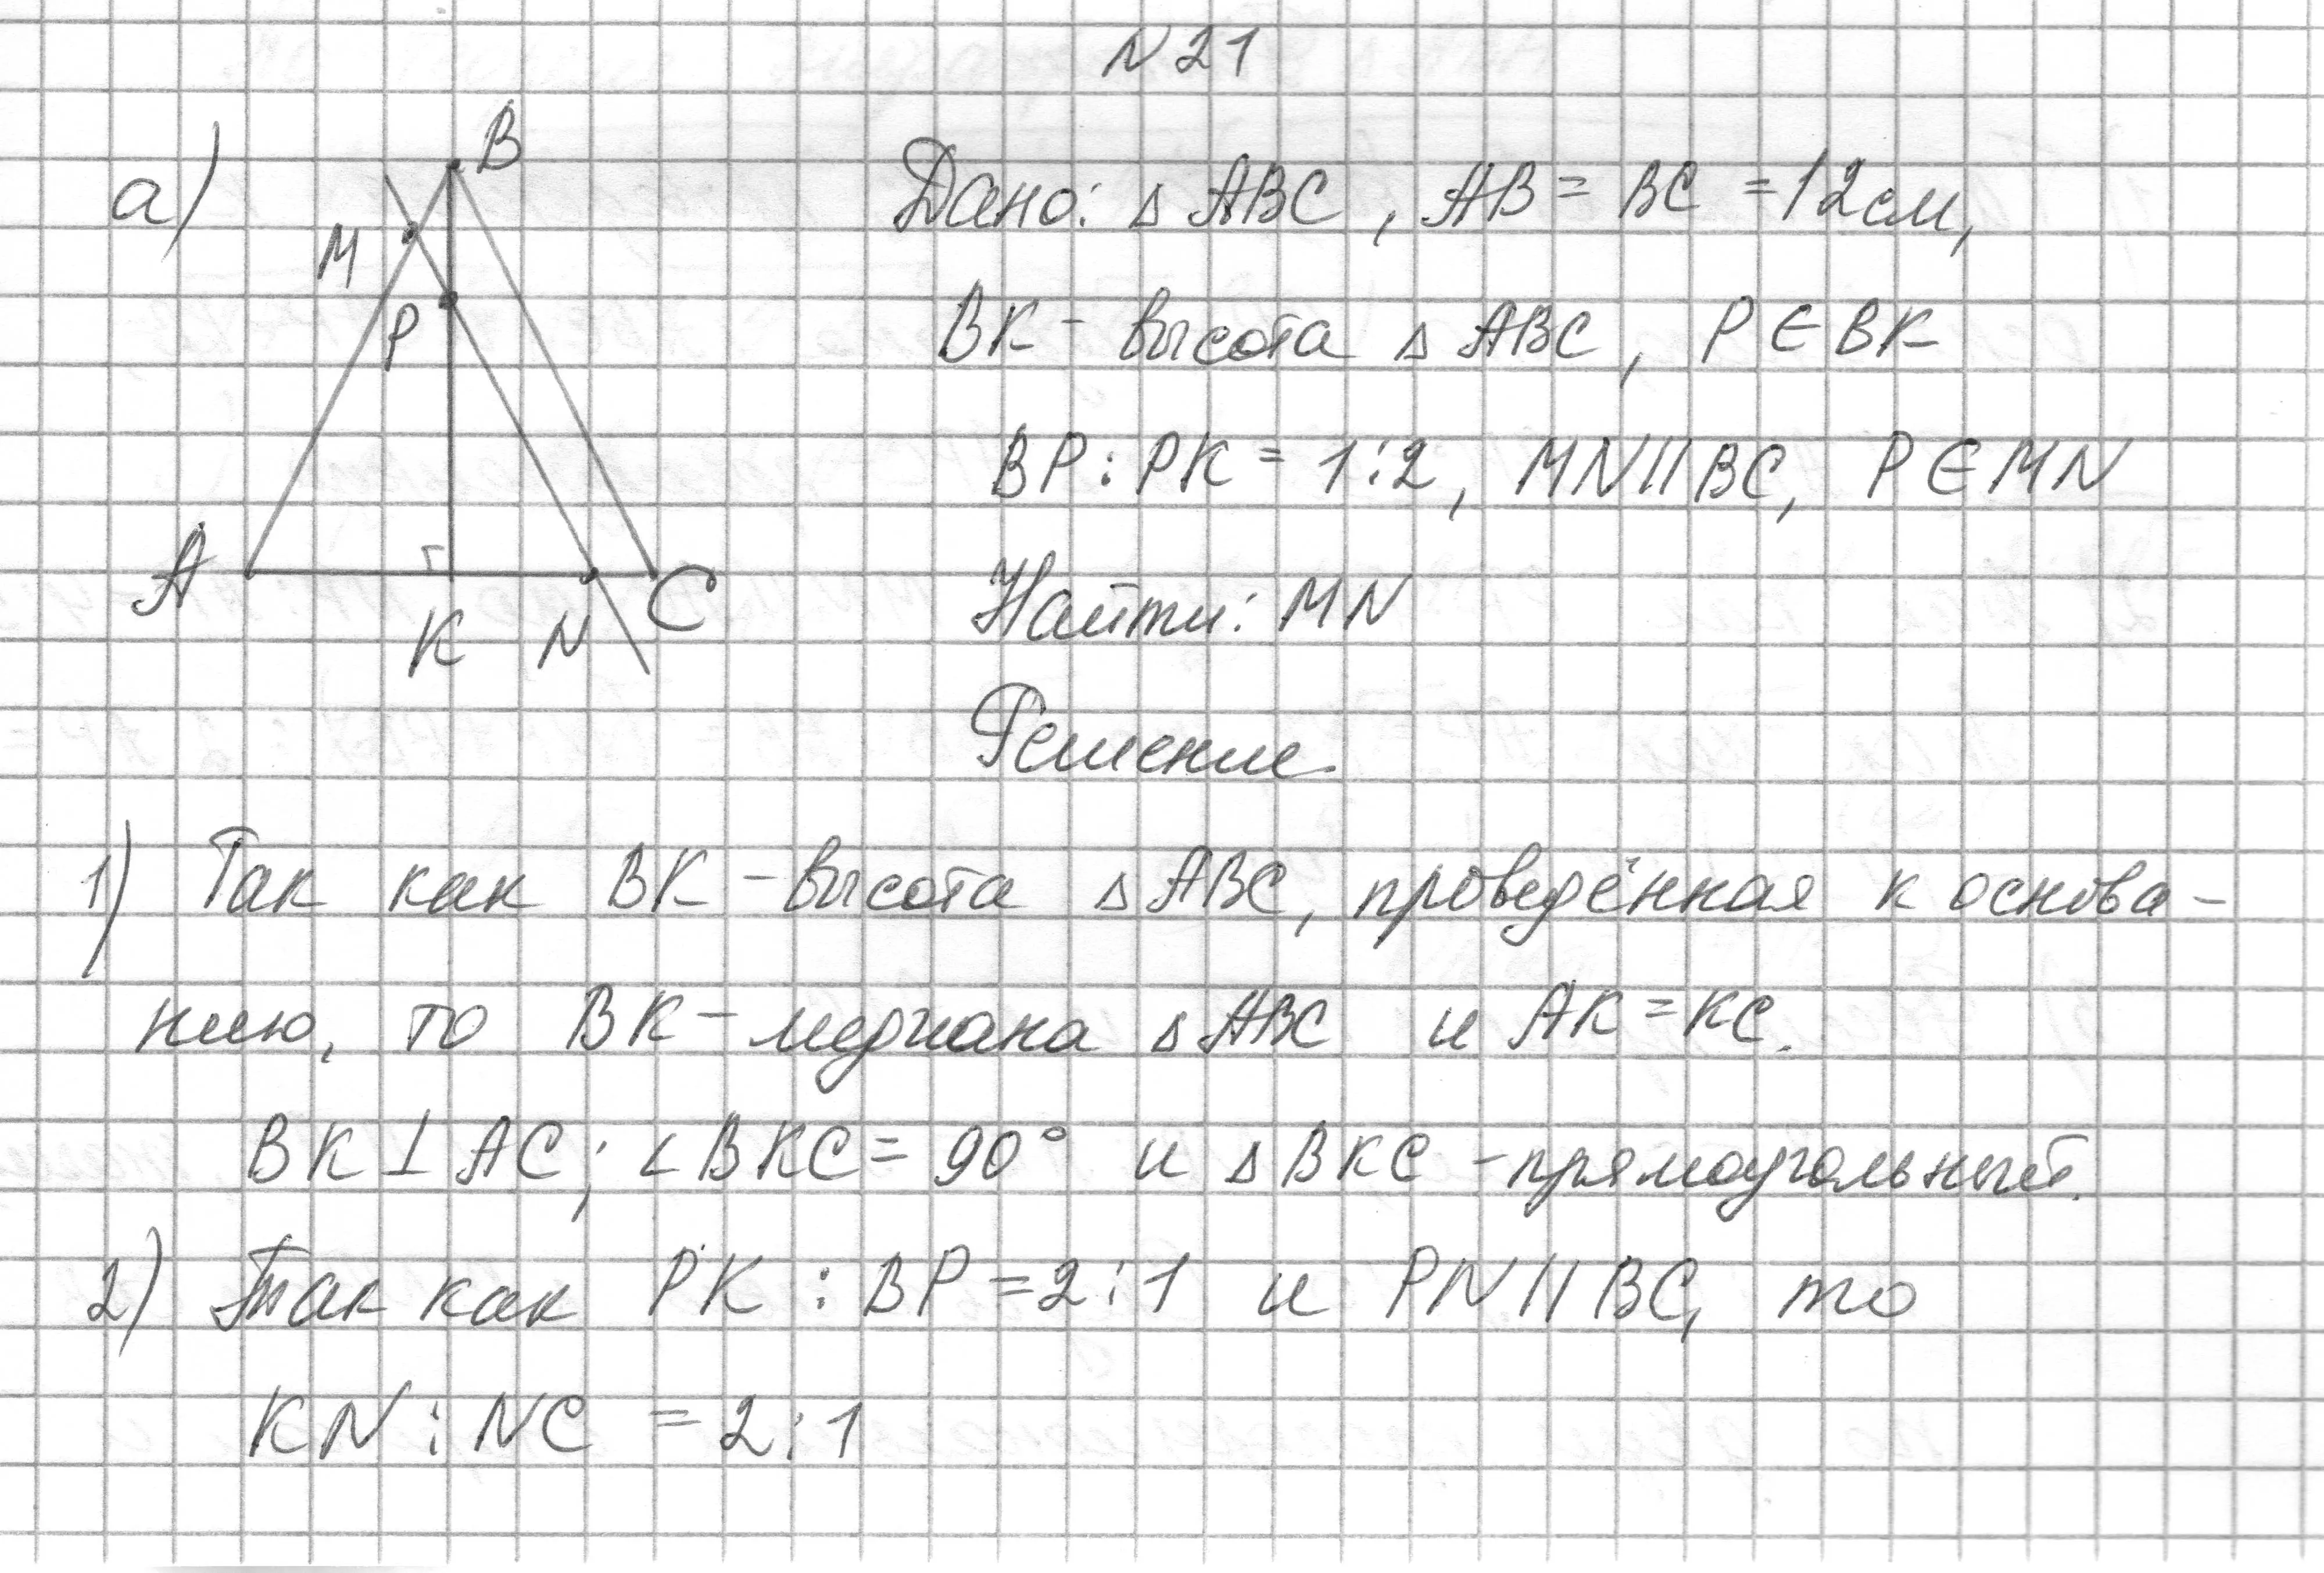 N21
а)
B
M
P
A
K
N
C
Дано: △ ABC, AB = BC = 12 см,
BK - высота △ ABC, P ∈ BK
BP : PK = 1:2, MN || BC, P ∈ MN
Найти: MN
Решение.
1) Так как BK - высота △ ABC, проведённая к основа-
нию, то BK - медиана △ ABC и AK = KC.
BK ⊥ AC; ∠ BKC = 90° и △ BKC - прямоугольный.
2) Так как PK : BP = 2:1 и PN || BC, то
KN : NC = 2:1